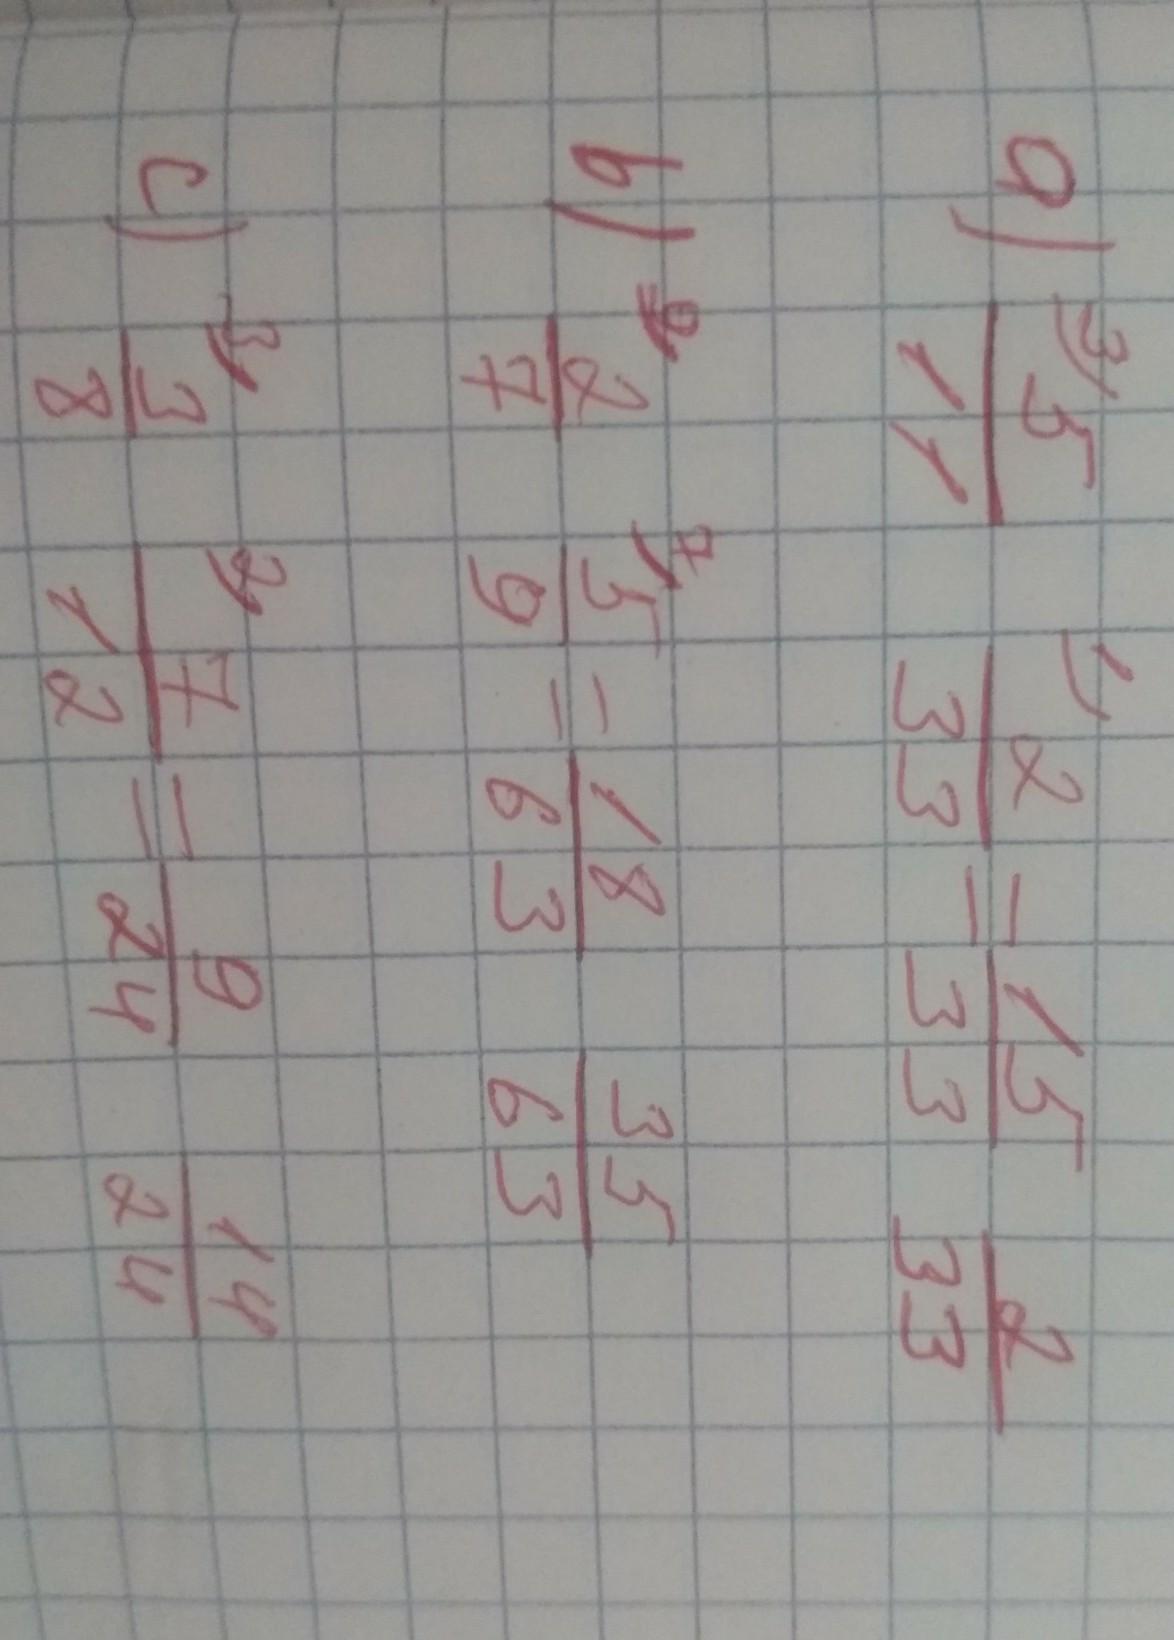 a) 3) 5/11 1) 2/33 = 15/33 2/33
b) 9) 2/7 7) 5/9 = 18/63 35/63
c) 3) 3/8 2) 7/12 = 9/24 14/24